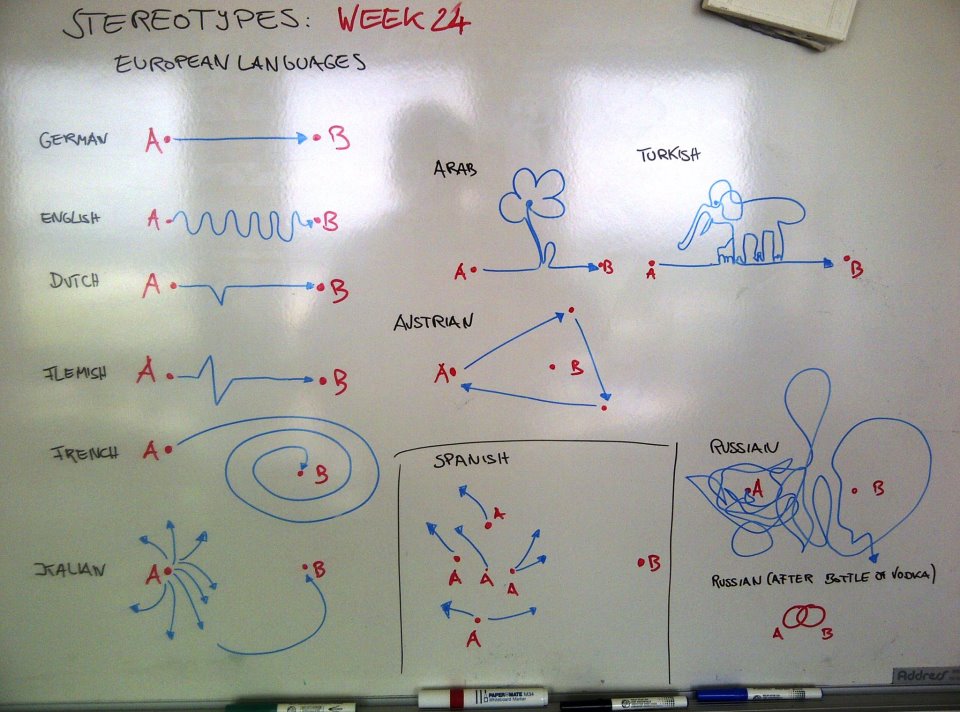 STEREOTYPES: WEEK 24
EUROPEAN LANGUAGES
GERMAN A B
ENGLISH A B
DUTCH A B
FLEMISH A B
FRENCH A B
ITALIAN A B
ARAB
A B
TURKISH
A B
AUSTRIAN
A B
SPANISH
A
A A A B
A
RUSSIAN
A B
RUSSIAN (AFTER BOTTLE OF VODKA)
A B
Address
PAPER MATE M34
Whiteboard Marker